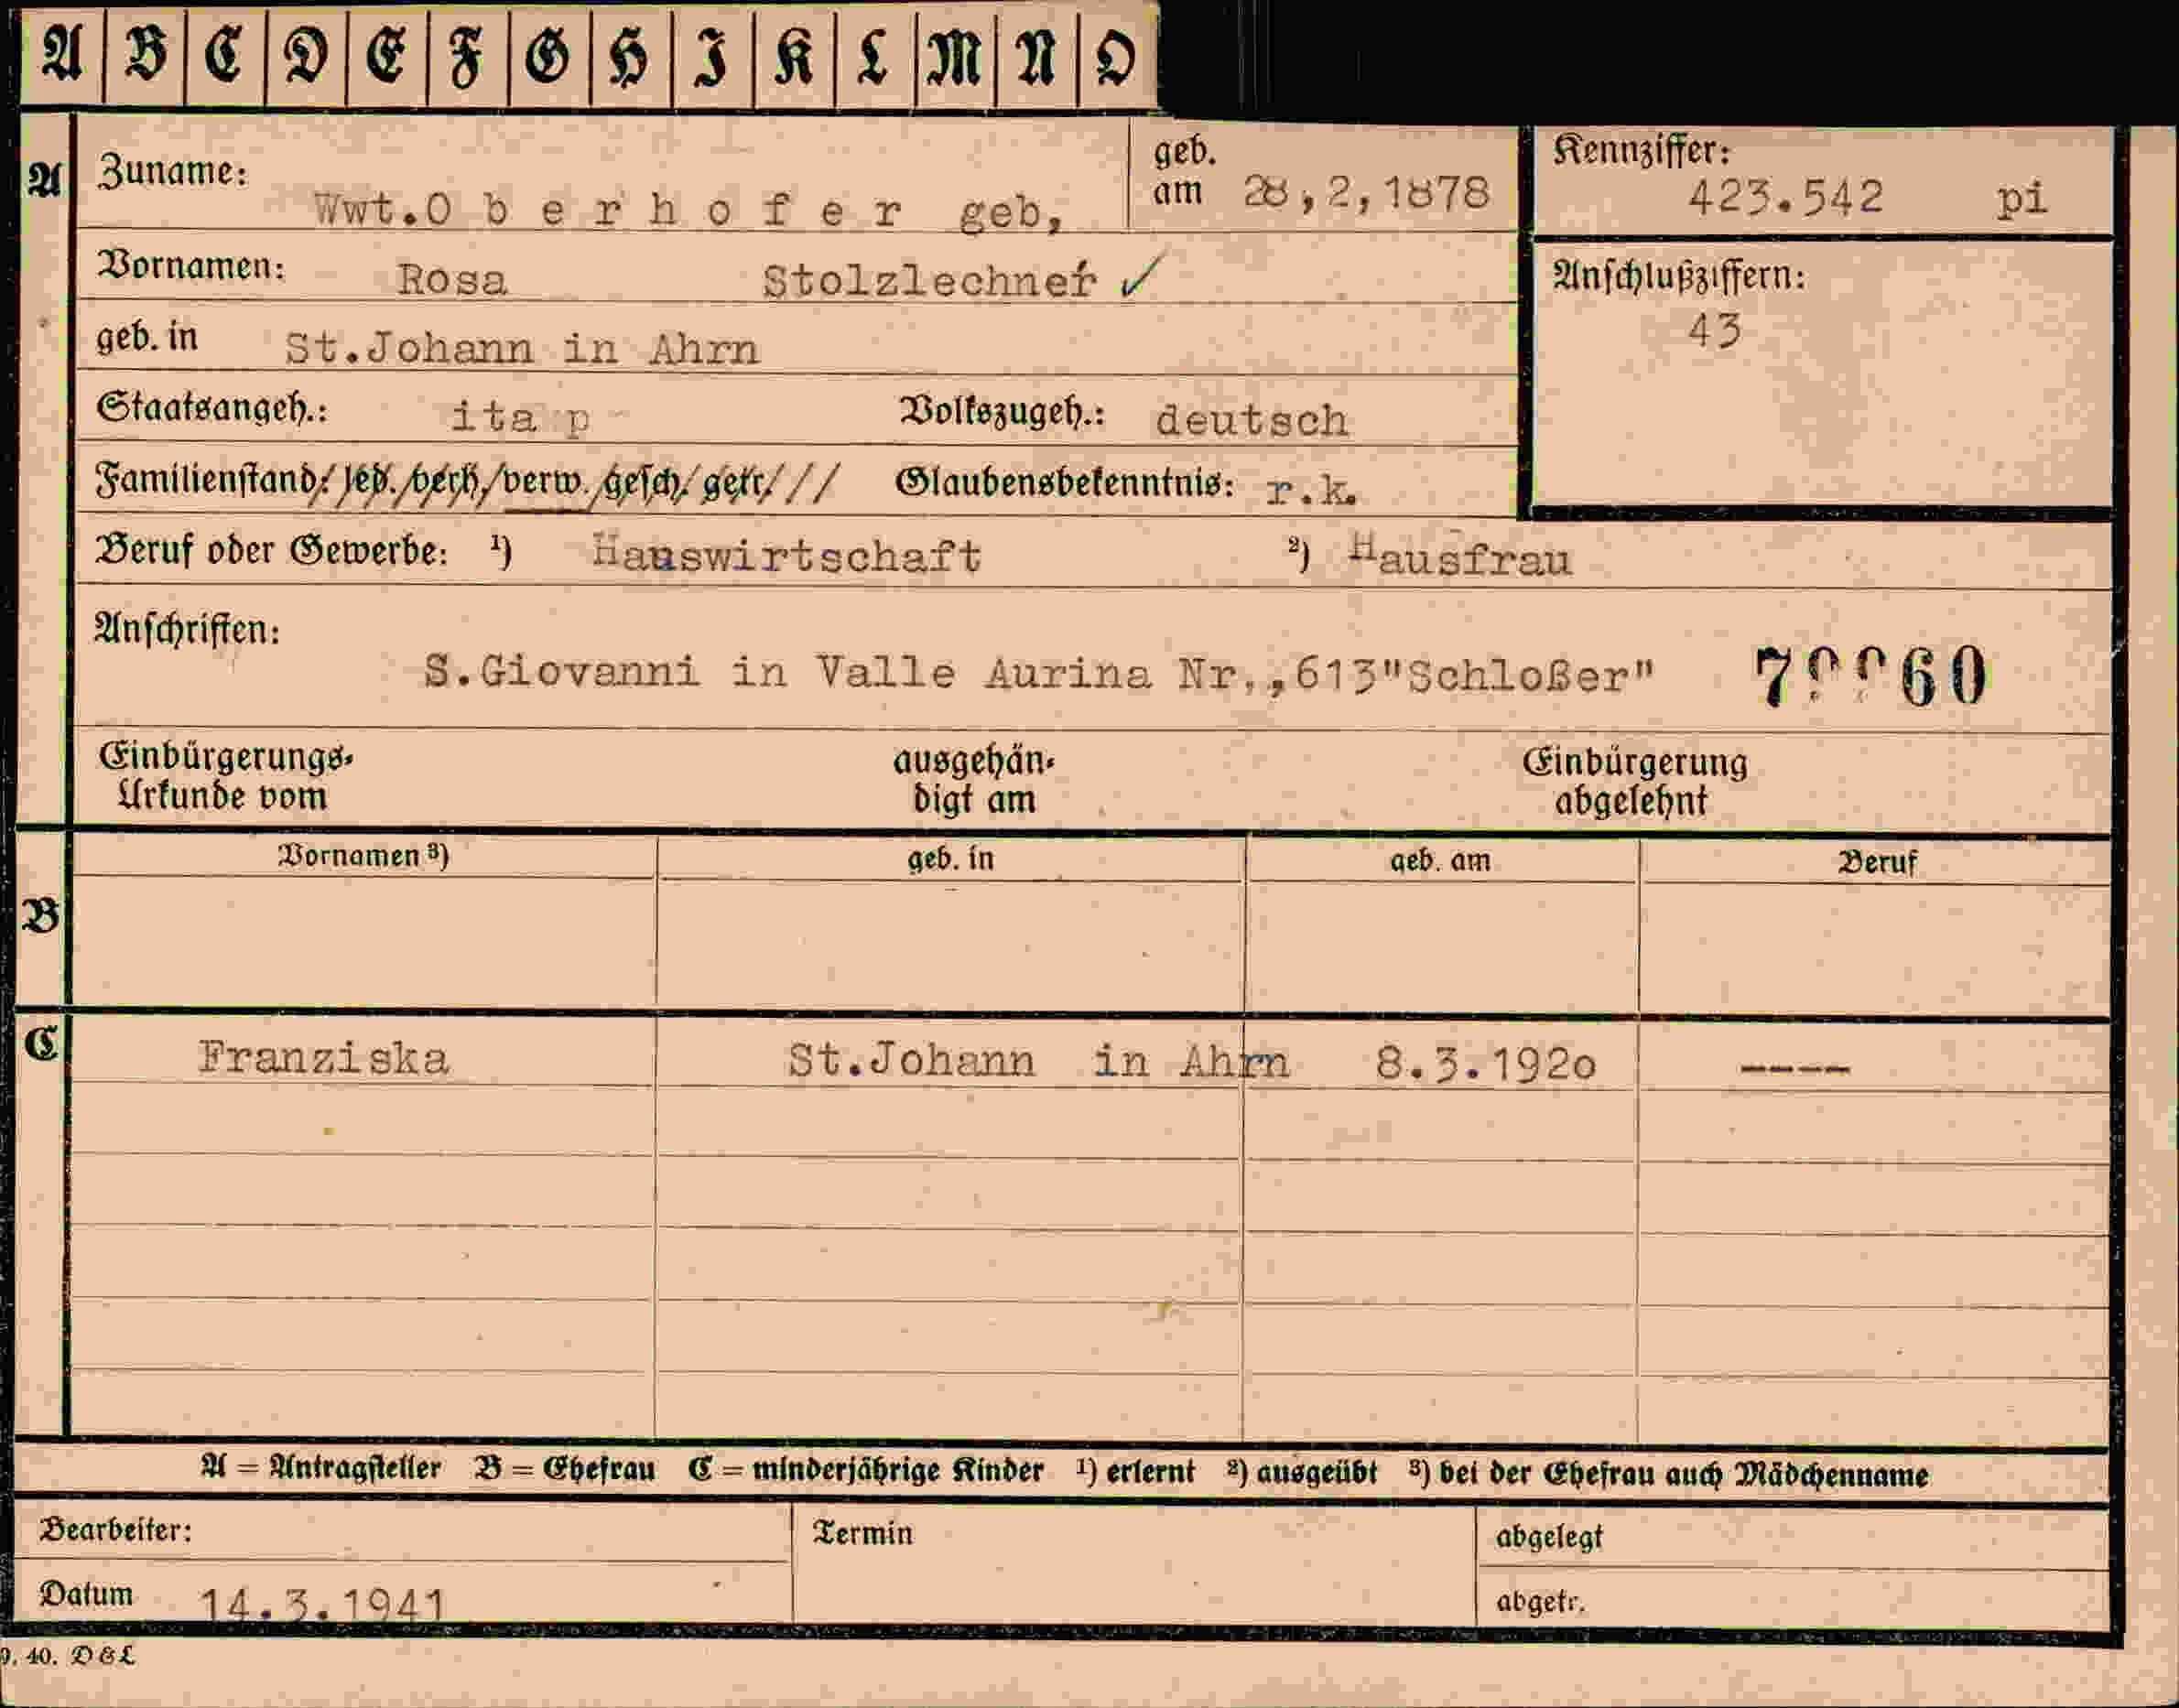 A B C D E F G H I K L M N O
A Zuname: Wwt.O b e r h o f e r geb, geb. am 28,2,1878 Kennziffer: 423.542 pi
Vornamen: Rosa Stolzlechner ✓ Anschlußziffern:
43
geb. in St.Johann in Ahrn
Staatsangeh.: ita p Volkszugeh.: deutsch
Familienstand: led./verh./verw./gesch./getr./// Glaubensbekenntnis: r.k.
Beruf oder Gewerbe: ¹) Hauswirtschaft ²) Hausfrau
Anschriften:
S.Giovanni in Valle Aurina Nr.,613"Schloßer"
Einbürgerungs- ausgehän- Einbürgerung
Urkunde vom digt am abgelehnt
Vornamen ³) geb. in geb. am Beruf
B
C Franziska St.Johann in Ahrn 8.3.1920 ----
A = Antragsteller B = Ehefrau C = minderjährige Kinder ¹) erlernt ²) ausgeübt ³) bei der Ehefrau auch Mädchenname
Bearbeiter: Termin abgelegt
Datum 14.3.1941 abgetr.
9. 40. D & L